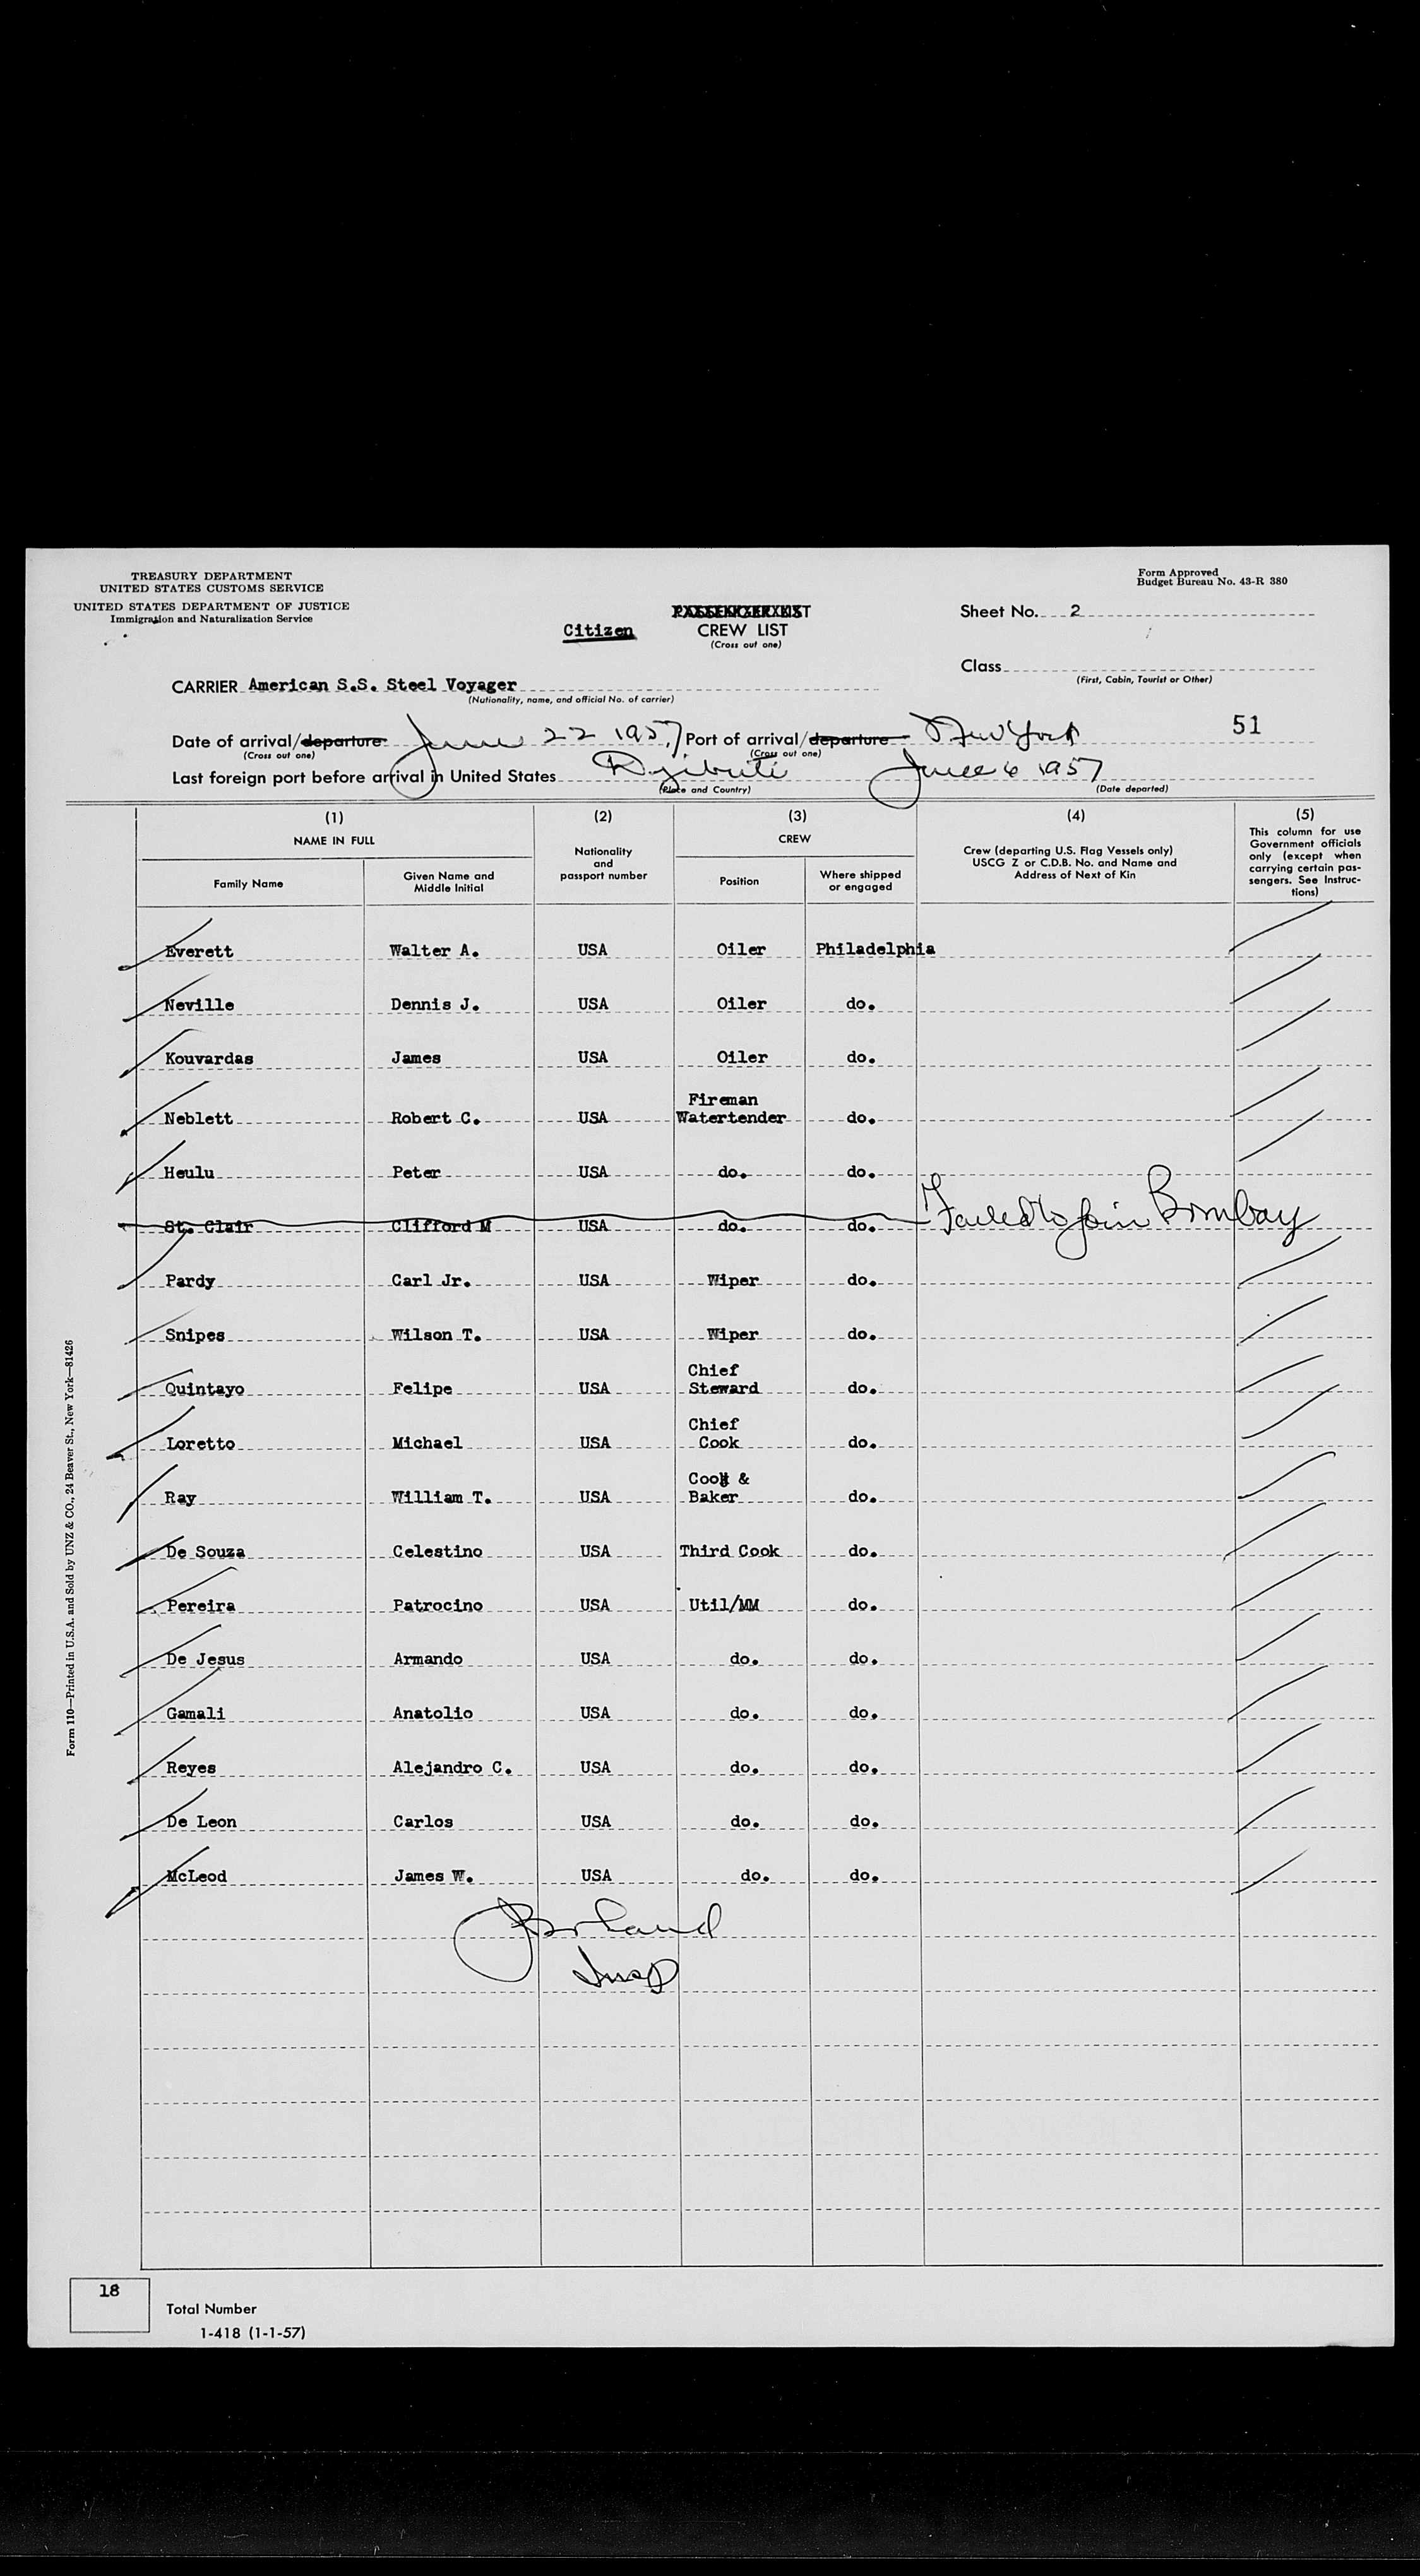 TREASURY DEPARTMENT
UNITED STATES CUSTOMS SERVICE
UNITED STATES DEPARTMENT OF JUSTICE
Immigration and Naturalization Service
Form Approved
Budget Bureau No. 43-R 380
PASSENGER LIST
Citizen CREW LIST
(Cross out one)
Sheet No. 2
Class
(First, Cabin, Tourist or Other)
CARRIER American S.S. Steel Voyager
(Nationality, name, and official No. of carrier)
51
Date of arrival/departure June 22 1957 Port of arrival/departure New York
(Cross out one) (Cross out one)
Last foreign port before arrival in United States Djibuti June 6 1957
(Place and Country) (Date departed)
(1) (2) (3) (4) (5)
NAME IN FULL Nationality and passport number CREW Crew (departing U.S. Flag Vessels only) USCG Z or C.D.B. No. and Name and Address of Next of Kin This column for use Government officials only (except when carrying certain passengers. See Instructions)
Family Name Given Name and Middle Initial Position Where shipped or engaged
Everett Walter A. USA Oiler Philadelphia
Neville Dennis J. USA Oiler do.
Kouvardas James USA Oiler do.
Neblett Robert C. USA Fireman Watertender do.
Heulu Peter USA do. do.
St. Clair Clifford M USA do. do. Failed to join Bombay
Pardy Carl Jr. USA Wiper do.
Snipes Wilson T. USA Wiper do.
Quintayo Felipe USA Chief Steward do.
Loretto Michael USA Chief Cook do.
Ray William T. USA Cook & Baker do.
De Souza Celestino USA Third Cook do.
Pereira Patrocino USA Util/MM do.
De Jesus Armando USA do. do.
Gamali Anatolio USA do. do.
Reyes Alejandro C. USA do. do.
De Leon Carlos USA do. do.
McLeod James W. USA do. do.
Insp
18
Total Number
1-418 (1-1-57)
Form 110—Printed in U.S.A. and Sold by UNZ & CO., 24 Beaver St., New York—81426